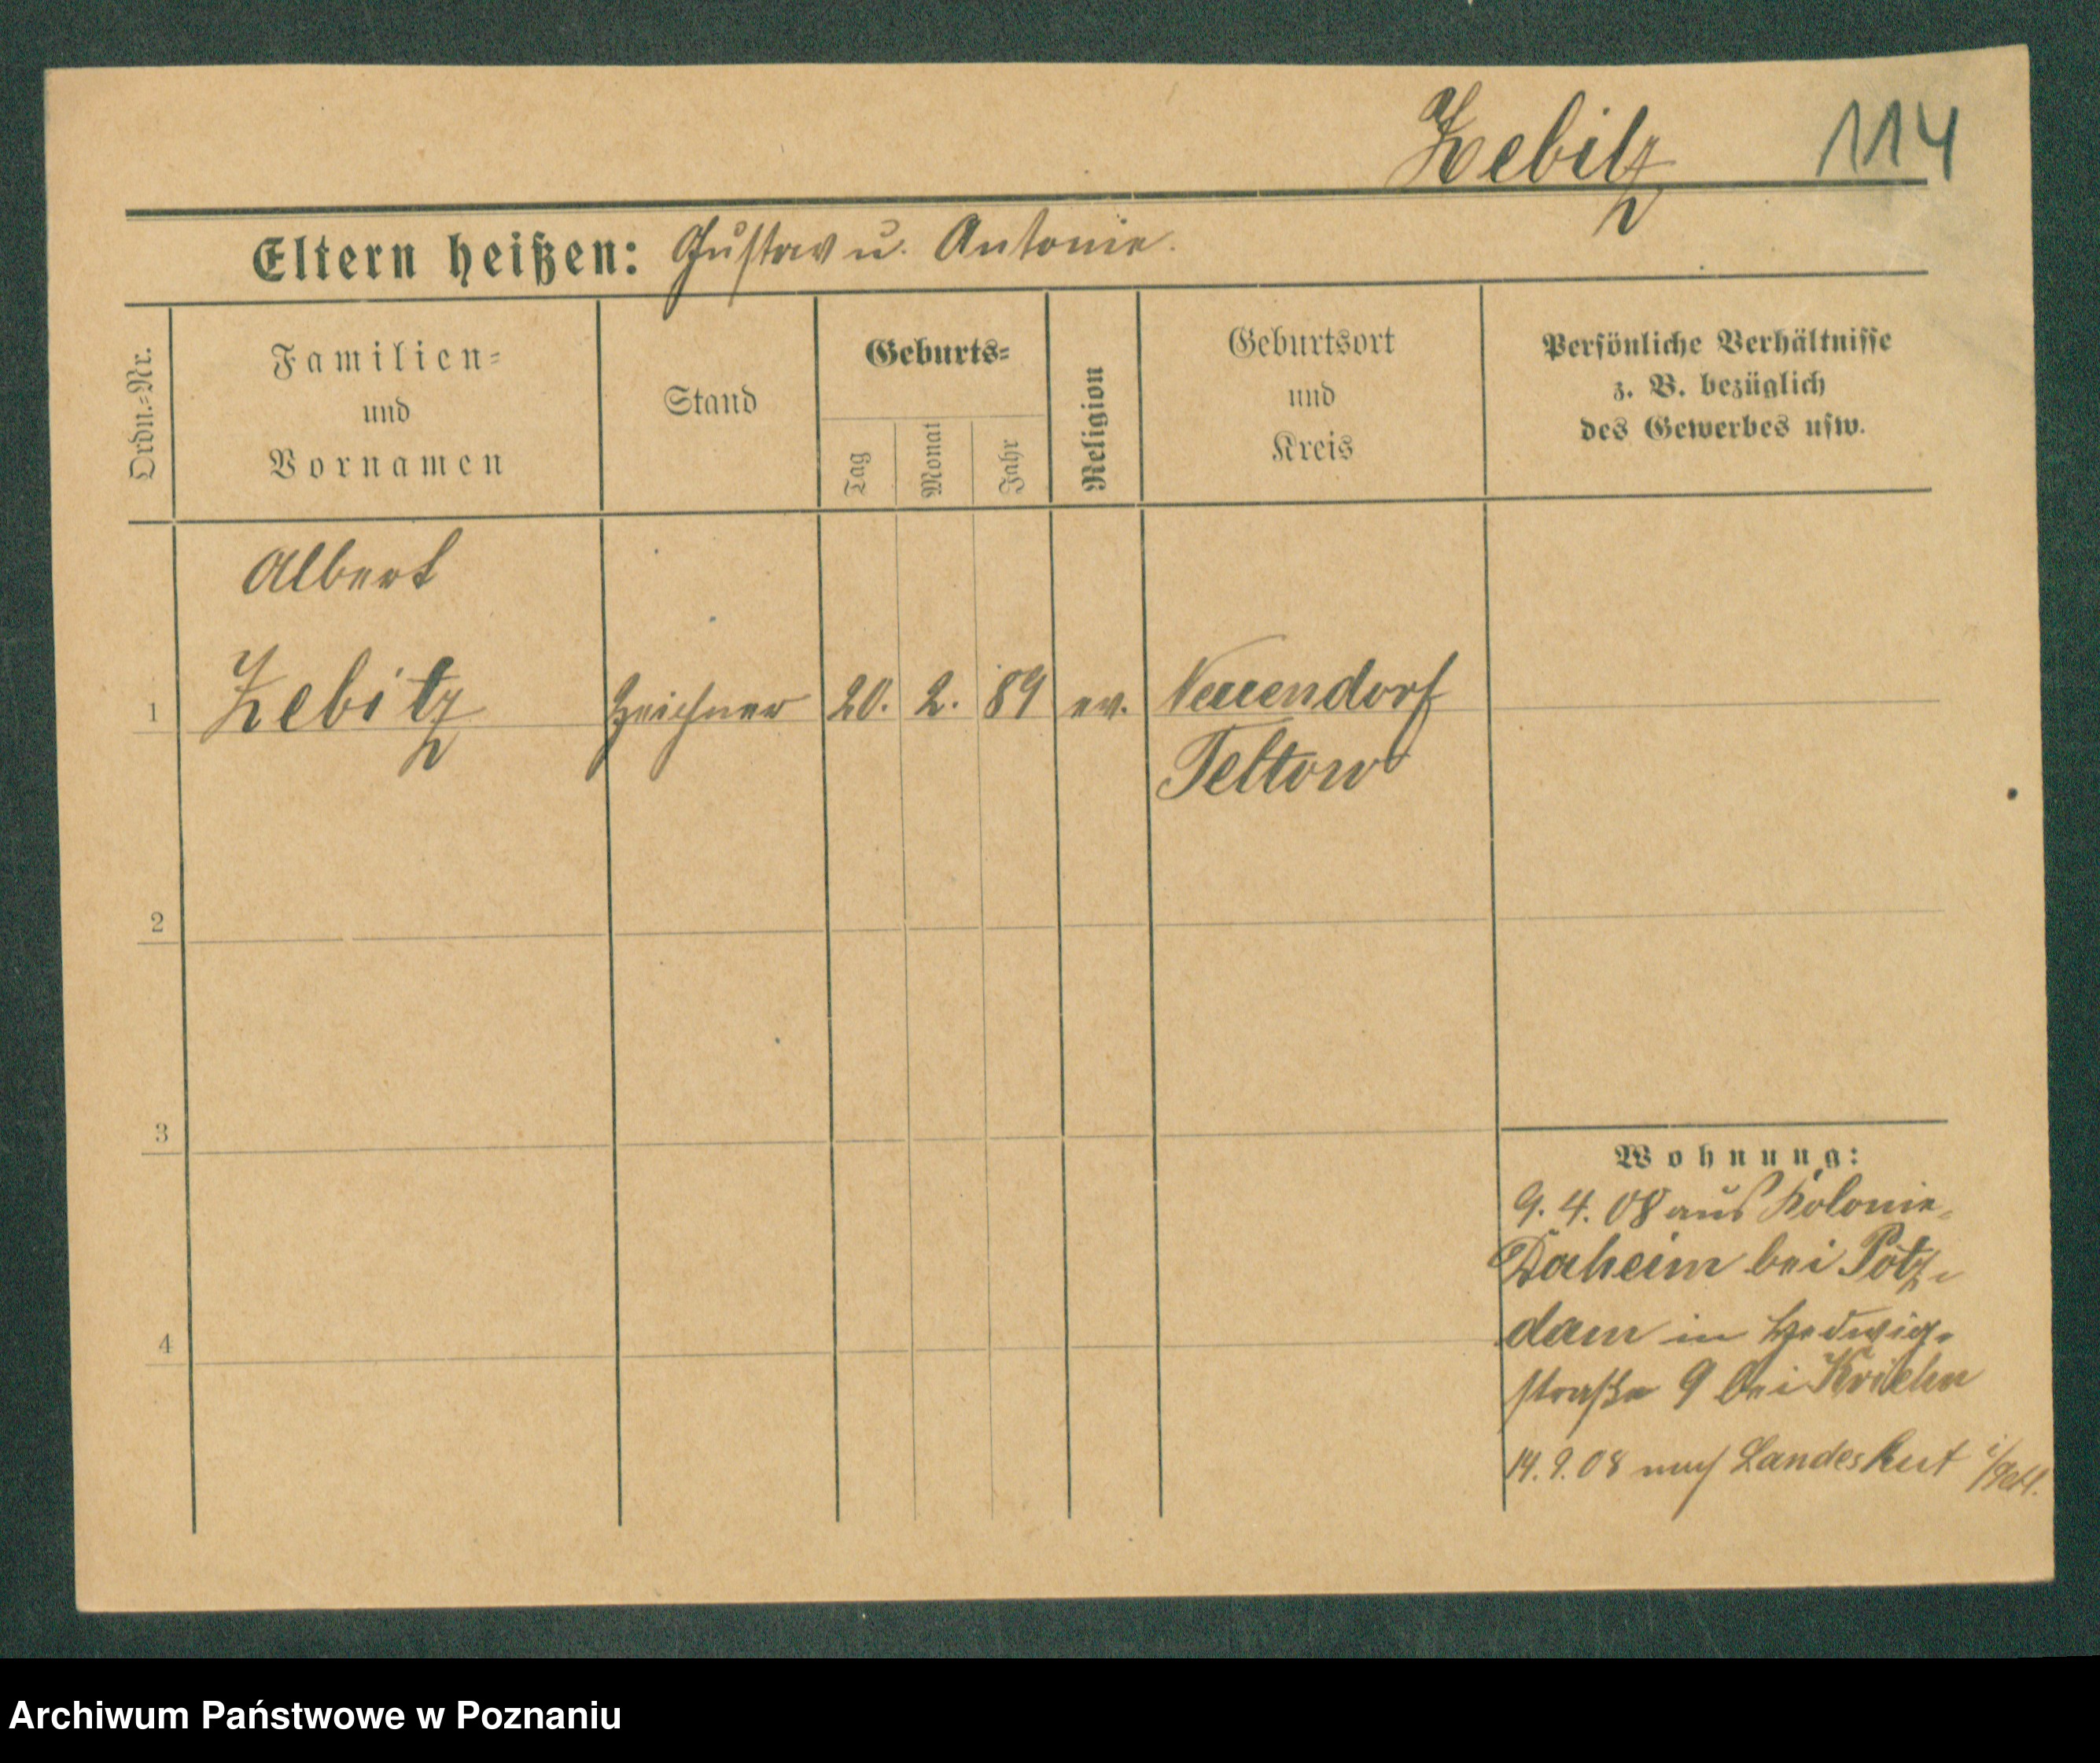 Zebitz 114
Eltern heißen: Gustav u. Antonie.
Ordn.=Nr.
Familien=
und
Vornamen
Stand
Geburts=
Tag
Monat
Jahr
Religion
Geburtsort
und
Kreis
Persönliche Verhältnisse
z. B. bezüglich
des Gewerbes usw.
Albert
1 Zebitz Zeichner 20. 2. 89 ev. Neuendorf
Teltow
2
3
4
Wohnung:
9. 4. 08 aus Kolonie
Daheim bei Potz-
dam in Hedwig-
straße 9 bei
14. 9. 08 nach Landeshut i/Schl.
Archiwum Państwowe w Poznaniu